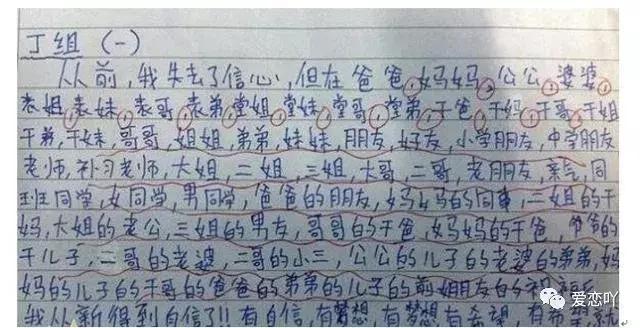 丁组 (一)
从前,我失去了信心,但在爸爸,妈妈,公公,婆婆,
表姐,表妹,表哥,表弟,堂姐,堂妹,堂哥,堂弟,干爸,干妈,干哥,干姐
干弟,干妹,哥哥,姐姐,弟弟,妹妹,朋友,好友,小学朋友,中学朋友
老师,补习老师,大姐,二姐,三姐,大哥,二哥,老朋友,亲戚,同
班同学,女同学,男同学,爸爸的朋友,妈妈的同事,二姐的干
妈,大姐的老公,三姐的男友,哥哥的干爸,妈妈的干爸,爷爷的
干儿子,二哥的老婆,二哥的小三,公公的儿子的老婆的弟弟,妈
妈的儿子的干哥的爸爸的弟弟的儿子的前姐朋友的
我从新得到自信了!! 有自信,有梦想,有梦想有希望,有希望就
爱恋吖